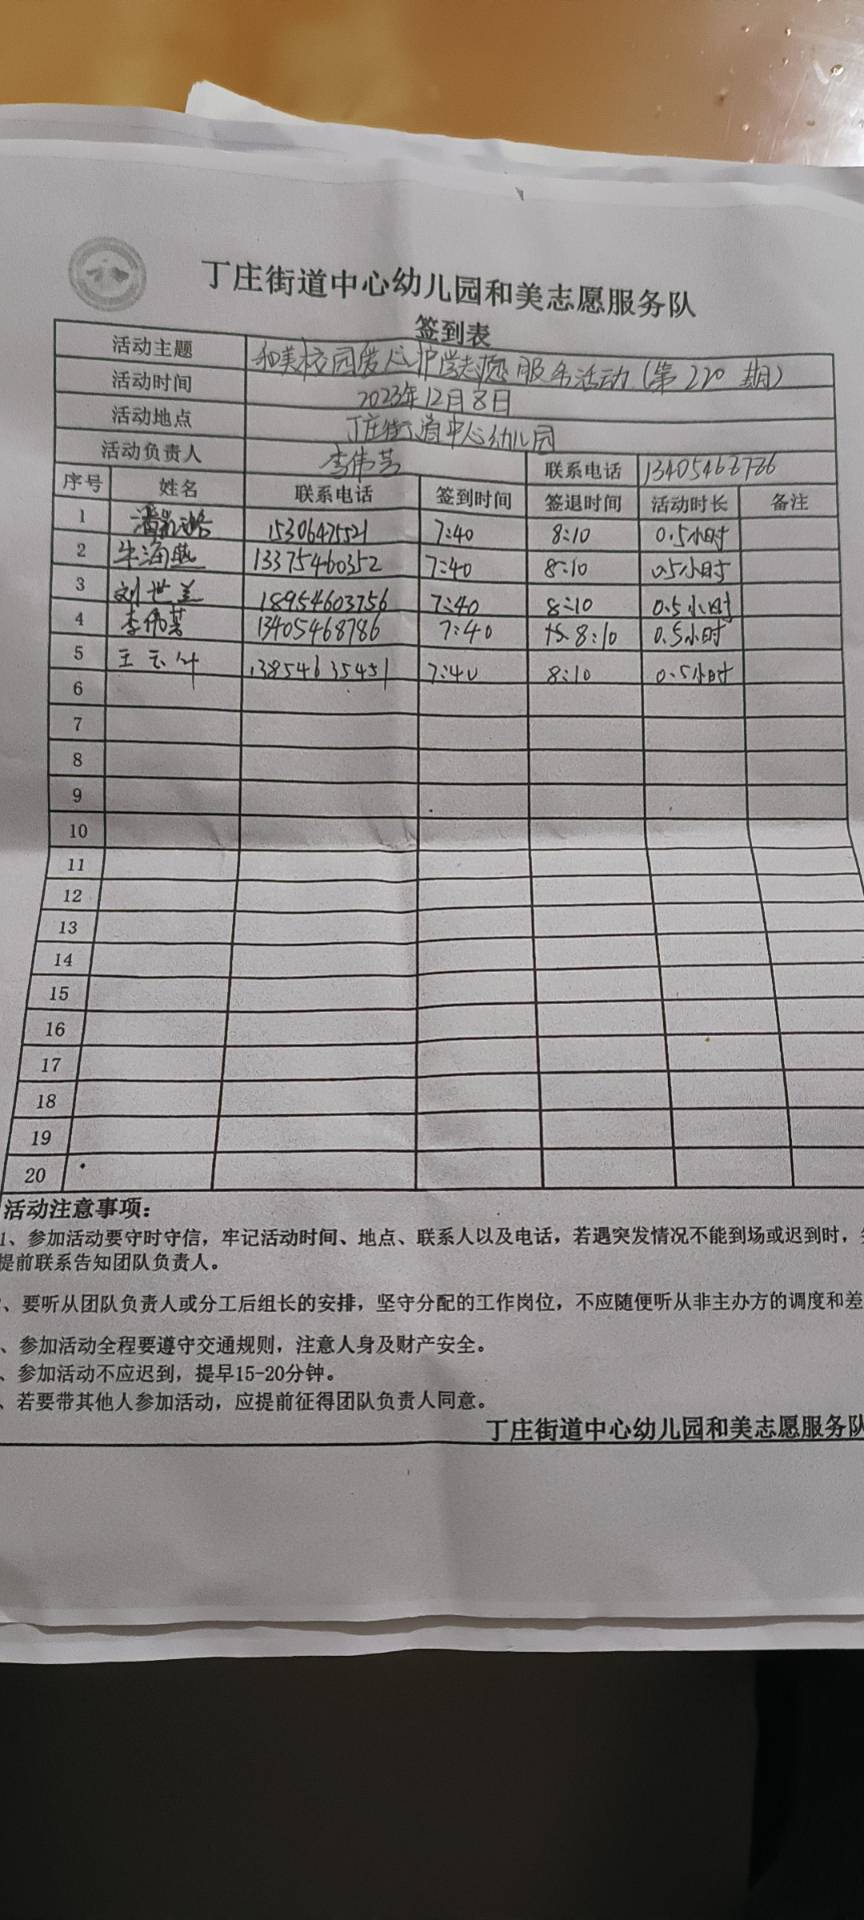 丁庄街道中心幼儿园和美志愿服务队
签到表
活动主题 和美校园爱心护学志愿服务活动(第220期)
活动时间 2023年12月8日
活动地点 丁庄街道中心幼儿园
活动负责人 李伟芸 联系电话 13405468786
序号 姓名 联系电话 签到时间 签退时间 活动时长 备注
1 15306475521 7:40 8:10 0.5小时
2 牛海燕 13375460352 7:40 8:10 0.5小时
3 刘世兰 18954603756 7:40 8:10 0.5小时
4 李伟芸 13405468786 7:40 8:10 0.5小时
5 王 13854635451 7:40 8:10 0.5小时
6
7
8
9
10
11
12
13
14
15
16
17
18
19
20
活动注意事项:
1、参加活动要守时守信,牢记活动时间、地点、联系人以及电话,若遇突发情况不能到场或迟到时,
提前联系告知团队负责人。
、要听从团队负责人或分工后组长的安排,坚守分配的工作岗位,不应随便听从非主办方的调度和差
、参加活动全程要遵守交通规则,注意人身及财产安全。
、参加活动不应迟到,提早15-20分钟。
、若要带其他人参加活动,应提前征得团队负责人同意。
丁庄街道中心幼儿园和美志愿服务队